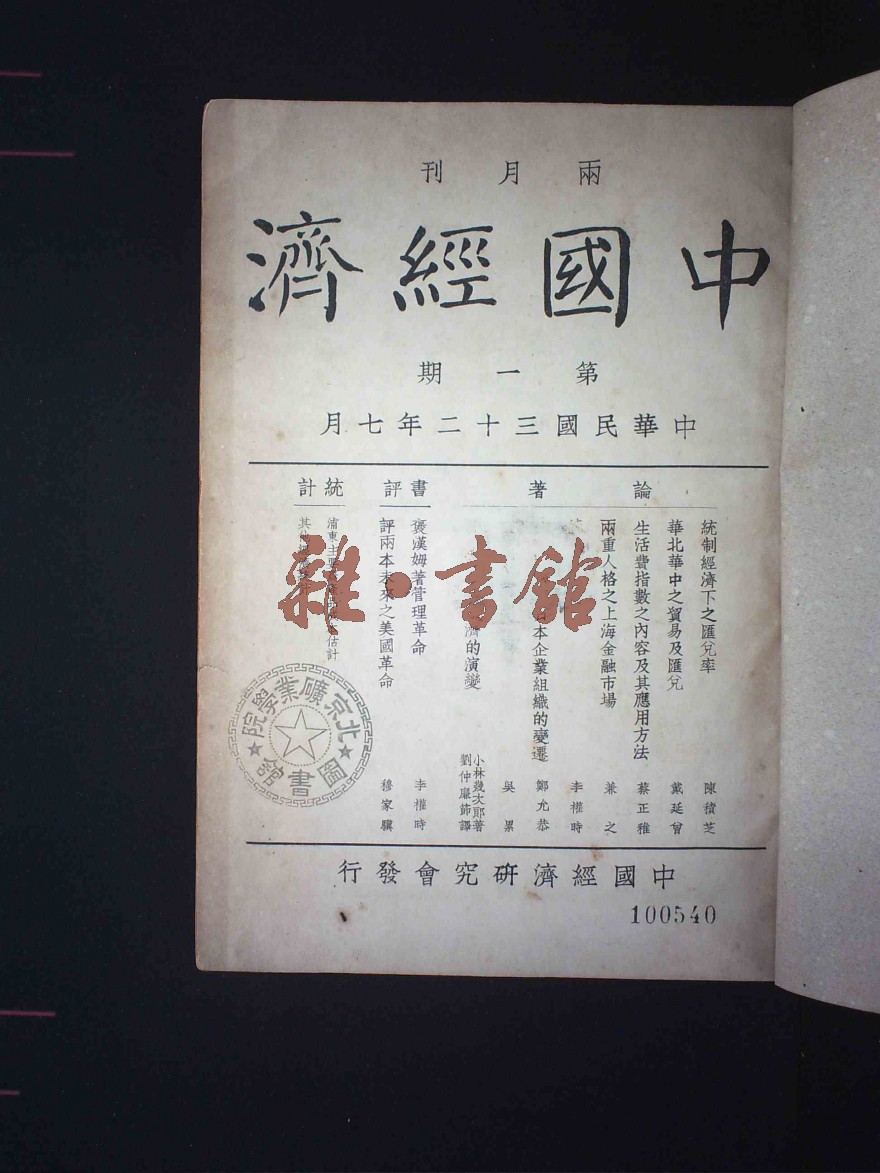 兩月刊
中國經濟
第一期
中華民國三十二年七月
論著
統制經濟下之匯兌率 陳積芝
華北華中之貿易及匯兌 戴延曾
生活費指數之內容及其應用方法 蔡正雅
兩重人格之上海金融市場 兼之
李權時
日本企業組織的變遷 鄭允恭
吳累
濟的演變 小林幾次郎著 劉仲廉節譯
書評
褒漢姆著管理革命 李權時
評兩本未來之美國革命 穆家驥
統計
浦東主要
估計
其他
中國經濟研究會發行
100540
北京礦業學院
圖書館
雜·書館